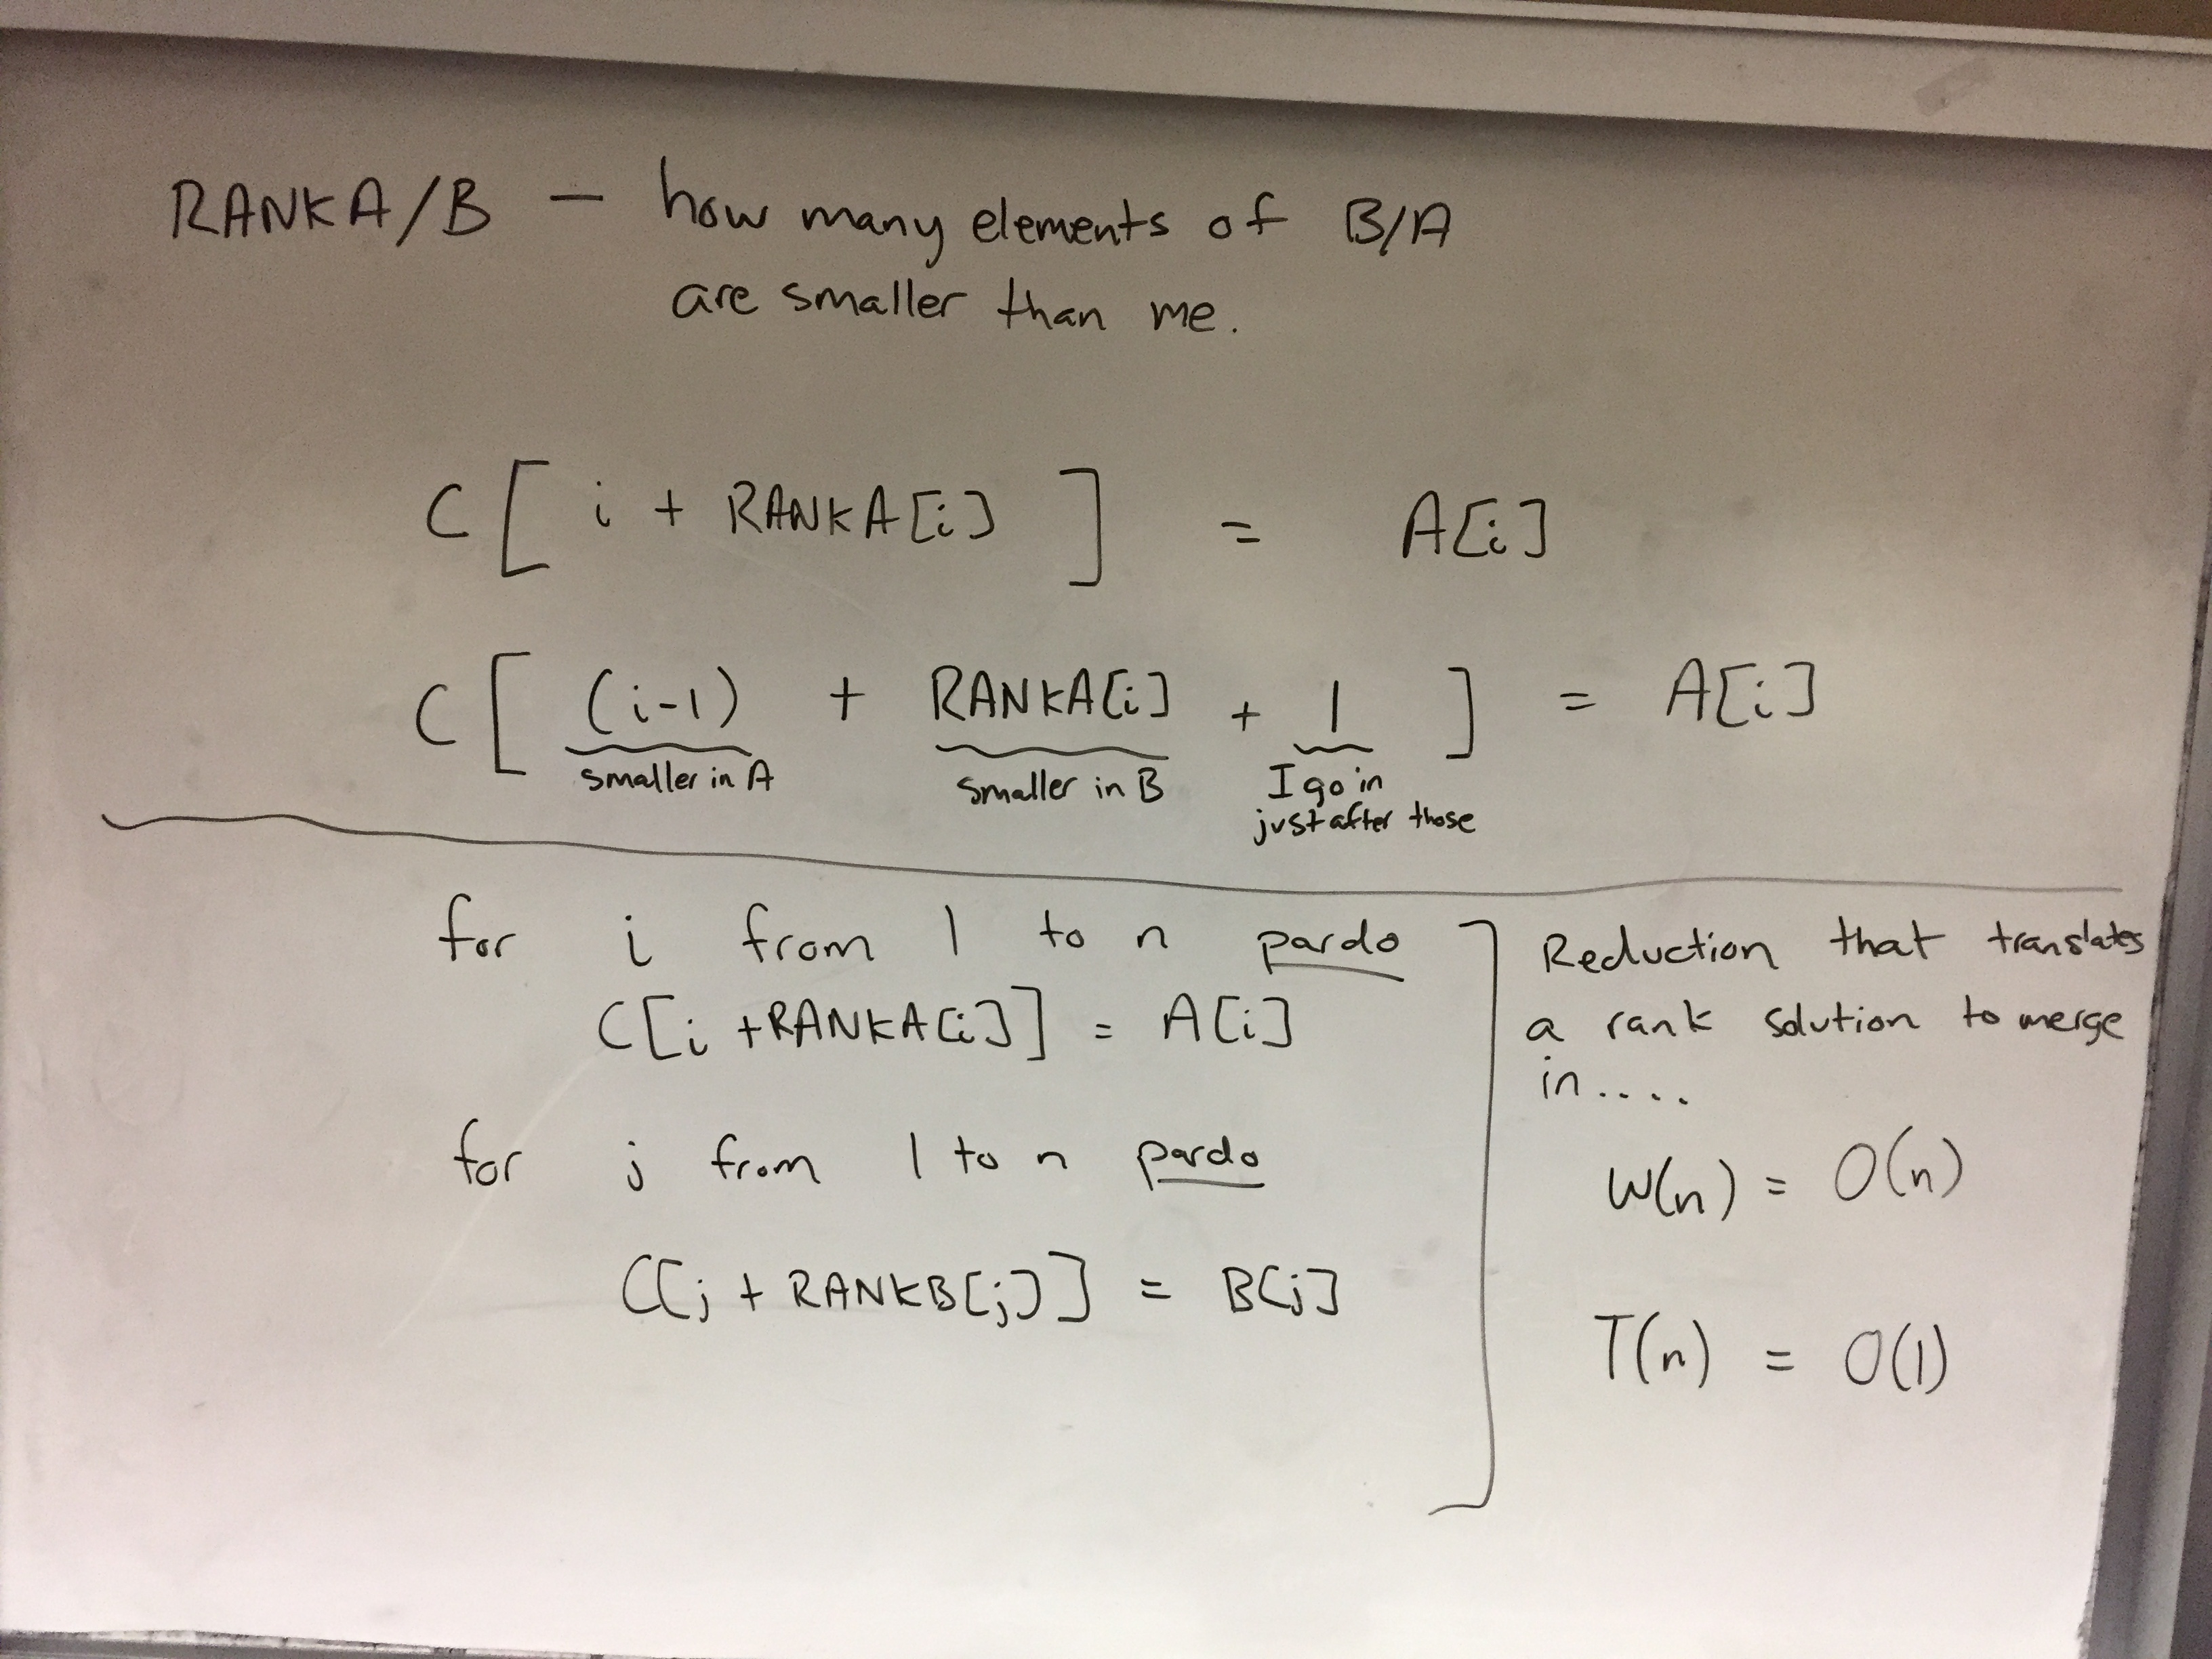 RANKA/B — how many elements of B/A
are smaller than me.
C[ i + RANKA[i] ] = A[i]
C[ (i-1) + RANKA[i] + 1 ] = A[i]
smaller in A smaller in B I go in
just after those
for i from 1 to n pardo
C[i +RANKA[i]] = A[i]
for j from 1 to n pardo
C[j + RANKB[j]] = B[j]
Reduction that translates
a rank solution to merge
in....
W(n) = O(n)
T(n) = O(1)